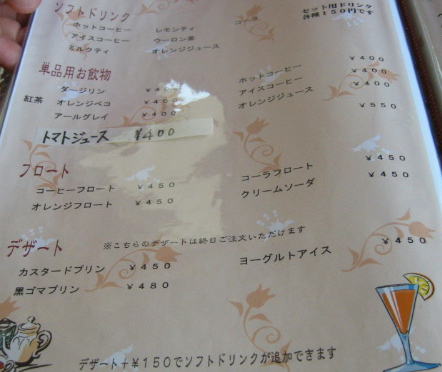 ソフトドリンク
セット用ドリンク
各種150円です
ホットコーヒー レモンティ コーラ
アイスコーヒー ウーロン茶
ミルクティ オレンジジュース
単品用お飲物
紅茶 ダージリン ¥400 ホットコーヒー ¥400
オレンジペコ ¥400 アイスコーヒー ¥400
アールグレイ ¥400 オレンジジュース ¥400
¥550
トマトジュース ¥400
フロート
コーヒーフロート ¥450 コーラフロート ¥450
オレンジフロート ¥450 クリームソーダ ¥450
デザート ※こちらのデザートは終日ご注文いただけます
カスタードプリン ¥450 ヨーグルトアイス ¥450
黒ゴマプリン ¥480
デザート+¥150でソフトドリンクが追加できます